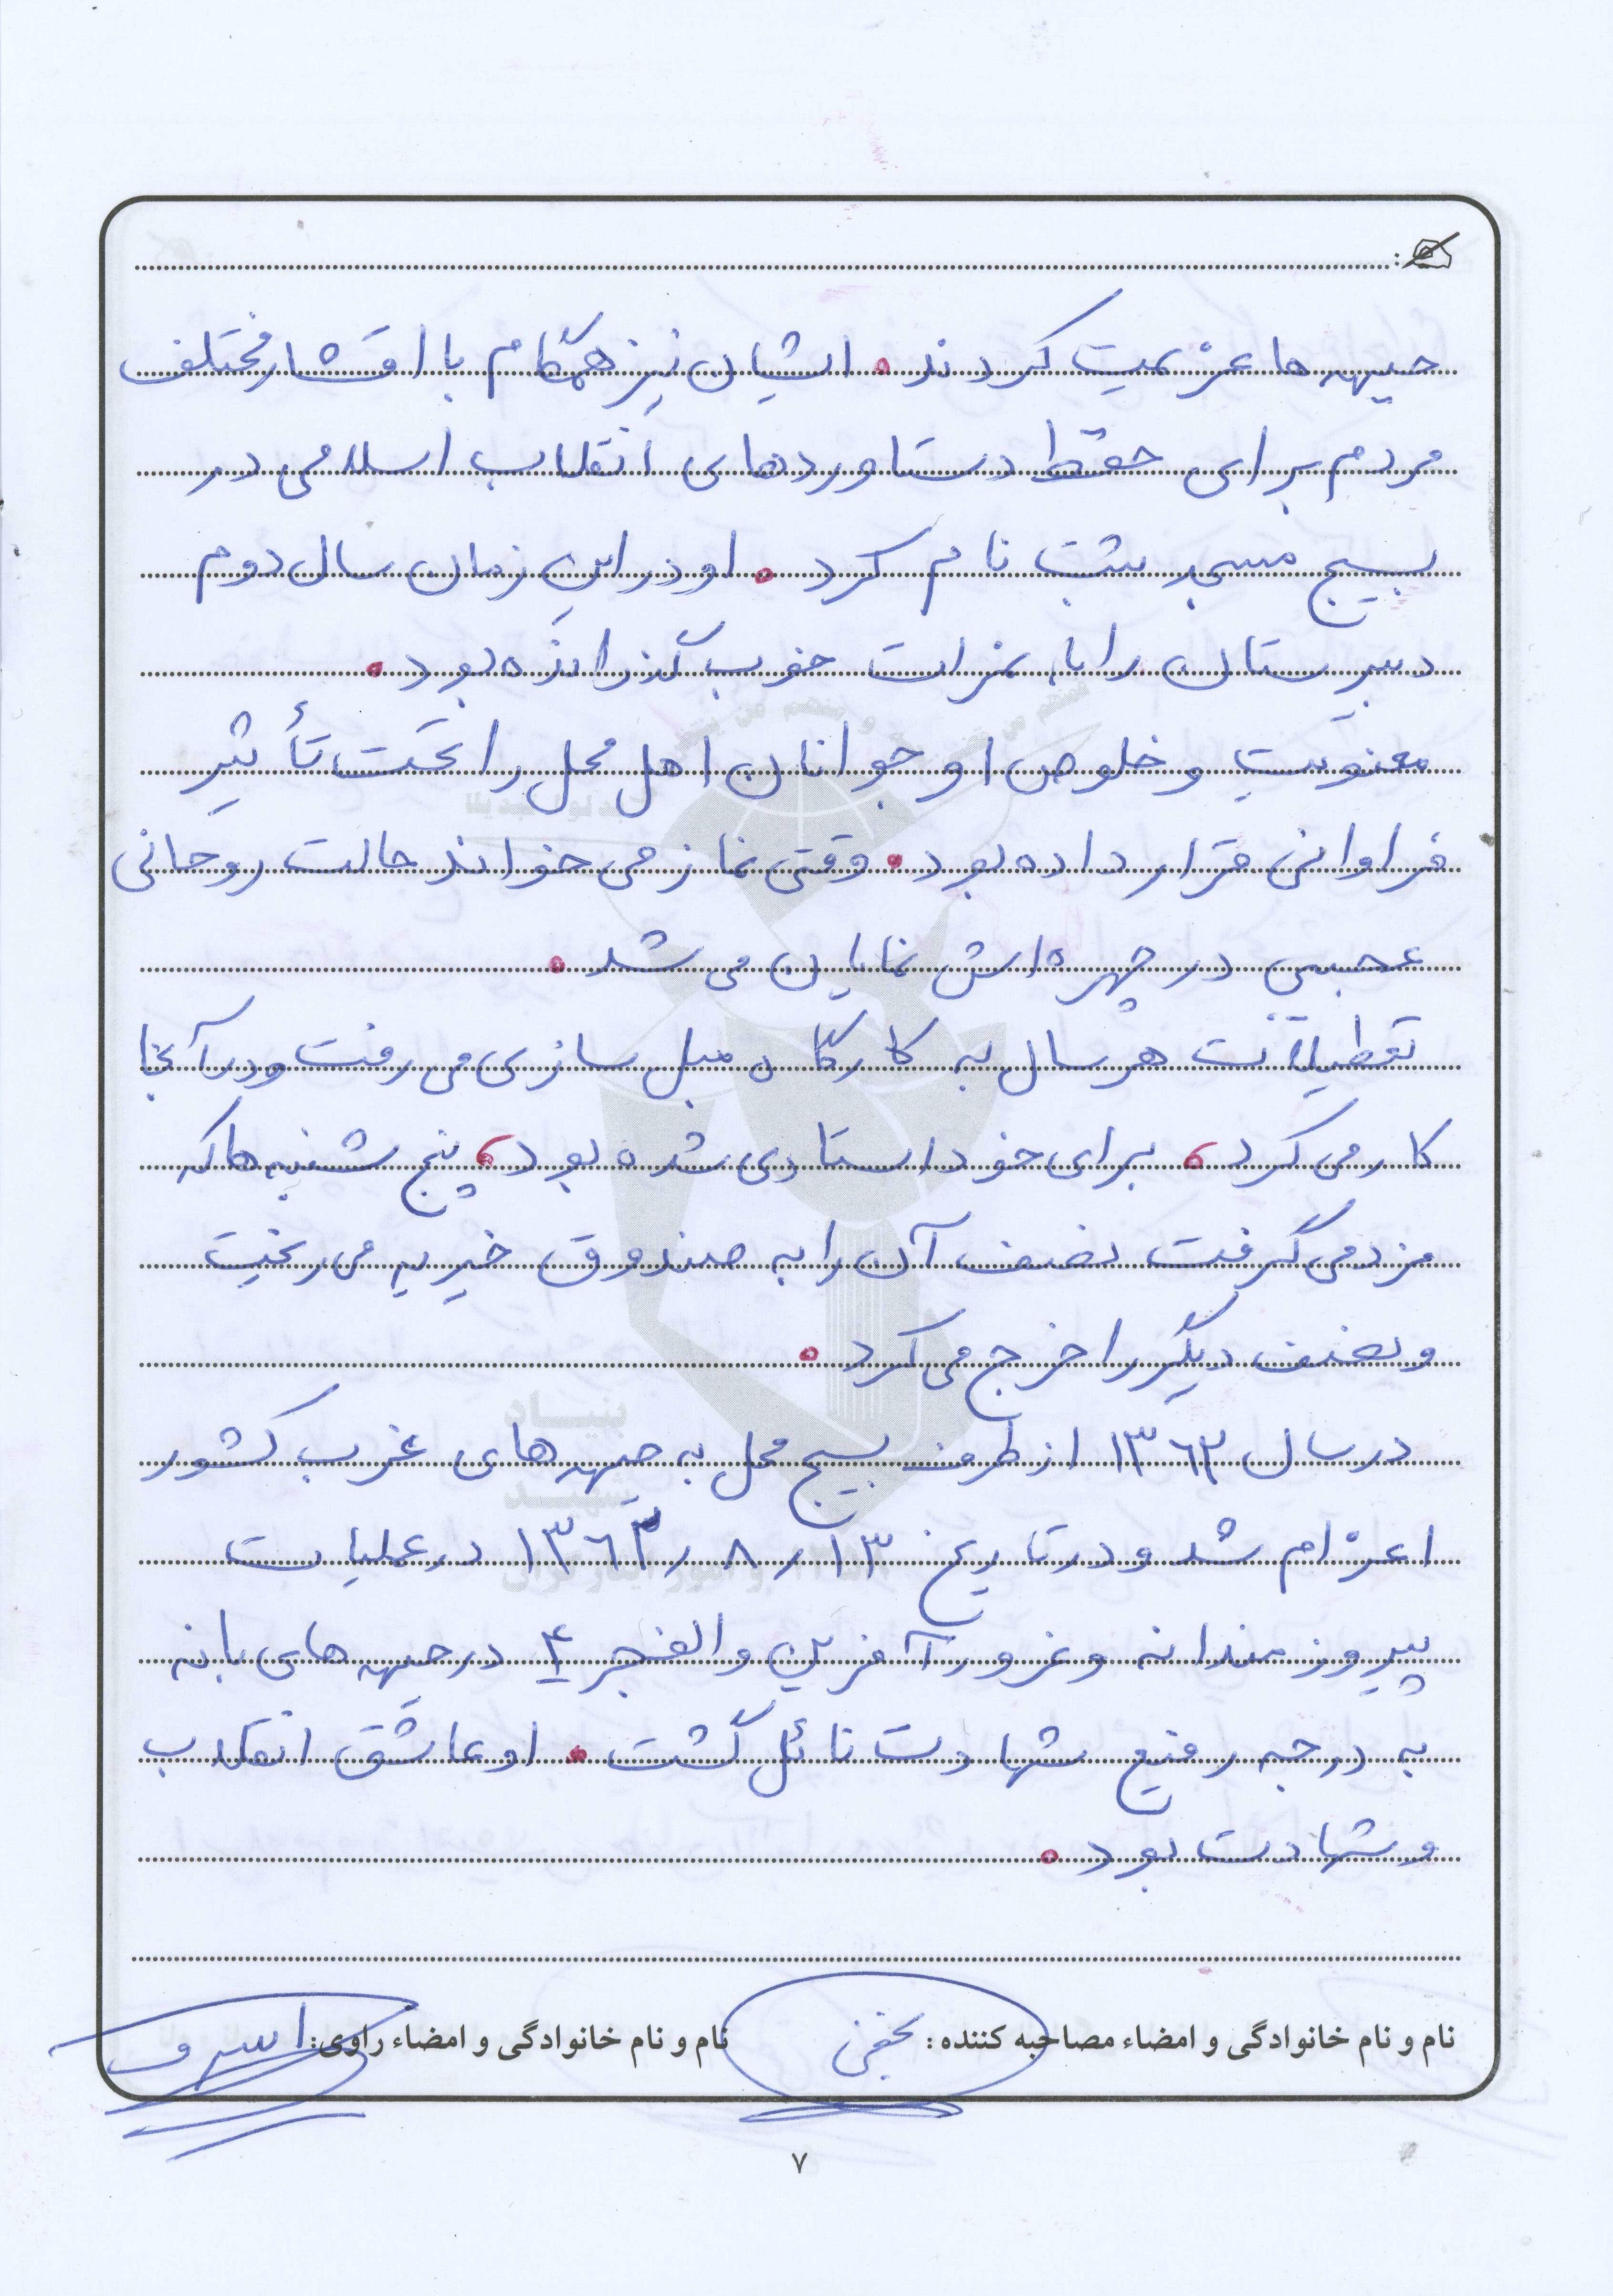 جبهه ها عزیمت کردند. ایشان نیز همگام با اقشار مختلف
مردم برای حفظ دستاوردهای انقلاب اسلامی در
بسیج مسجد ثبت نام کرد. او در این زمان سال دوم
دبیرستان را با نمرات خوب گذرانده بود.
معنویت و خلوص او جوانان اهل محل را تحت تأثیر
فراوانی قرار داده بود. وقتی نماز می خواند حالت روحانی
عجیبی در چهره اش نمایان می شد.
تعطیلات هر سال به کارگاه مبل سازی می رفت و در آنجا
کار می کرد، برای خود استادی شده بود، پنج شنبه ها که
مزد می گرفت نصف آن را به صندوق خیریه می ریخت
و نصف دیگر را خرج می کرد.
در سال ۱۳۶۲ از طرف بسیج محل به جبهه های غرب کشور
اعزام شد و در تاریخ ۱۳ ر ۸ ر ۱۳۶۲ در عملیات
پیروزمندانه و غرورآفرین والفجر ۴ در جبهه های بانه
به درجه رفیع شهادت نائل گشت. او عاشق انقلاب
و شهادت بود.
نام و نام خانوادگی و امضاء مصاحبه کننده: نام و نام خانوادگی و امضاء راوی:
۷